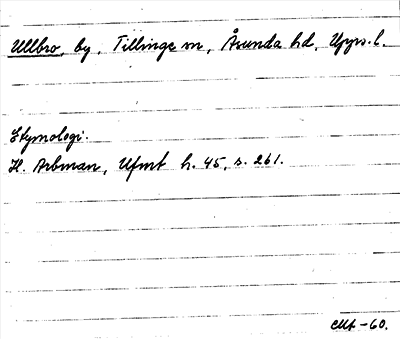 Ullbro, by, Tillinge sn, Åsunda hd, Upps. l.
Etymologi.
H. Arbman, Ufmt h. 45, s. 261.
-60.